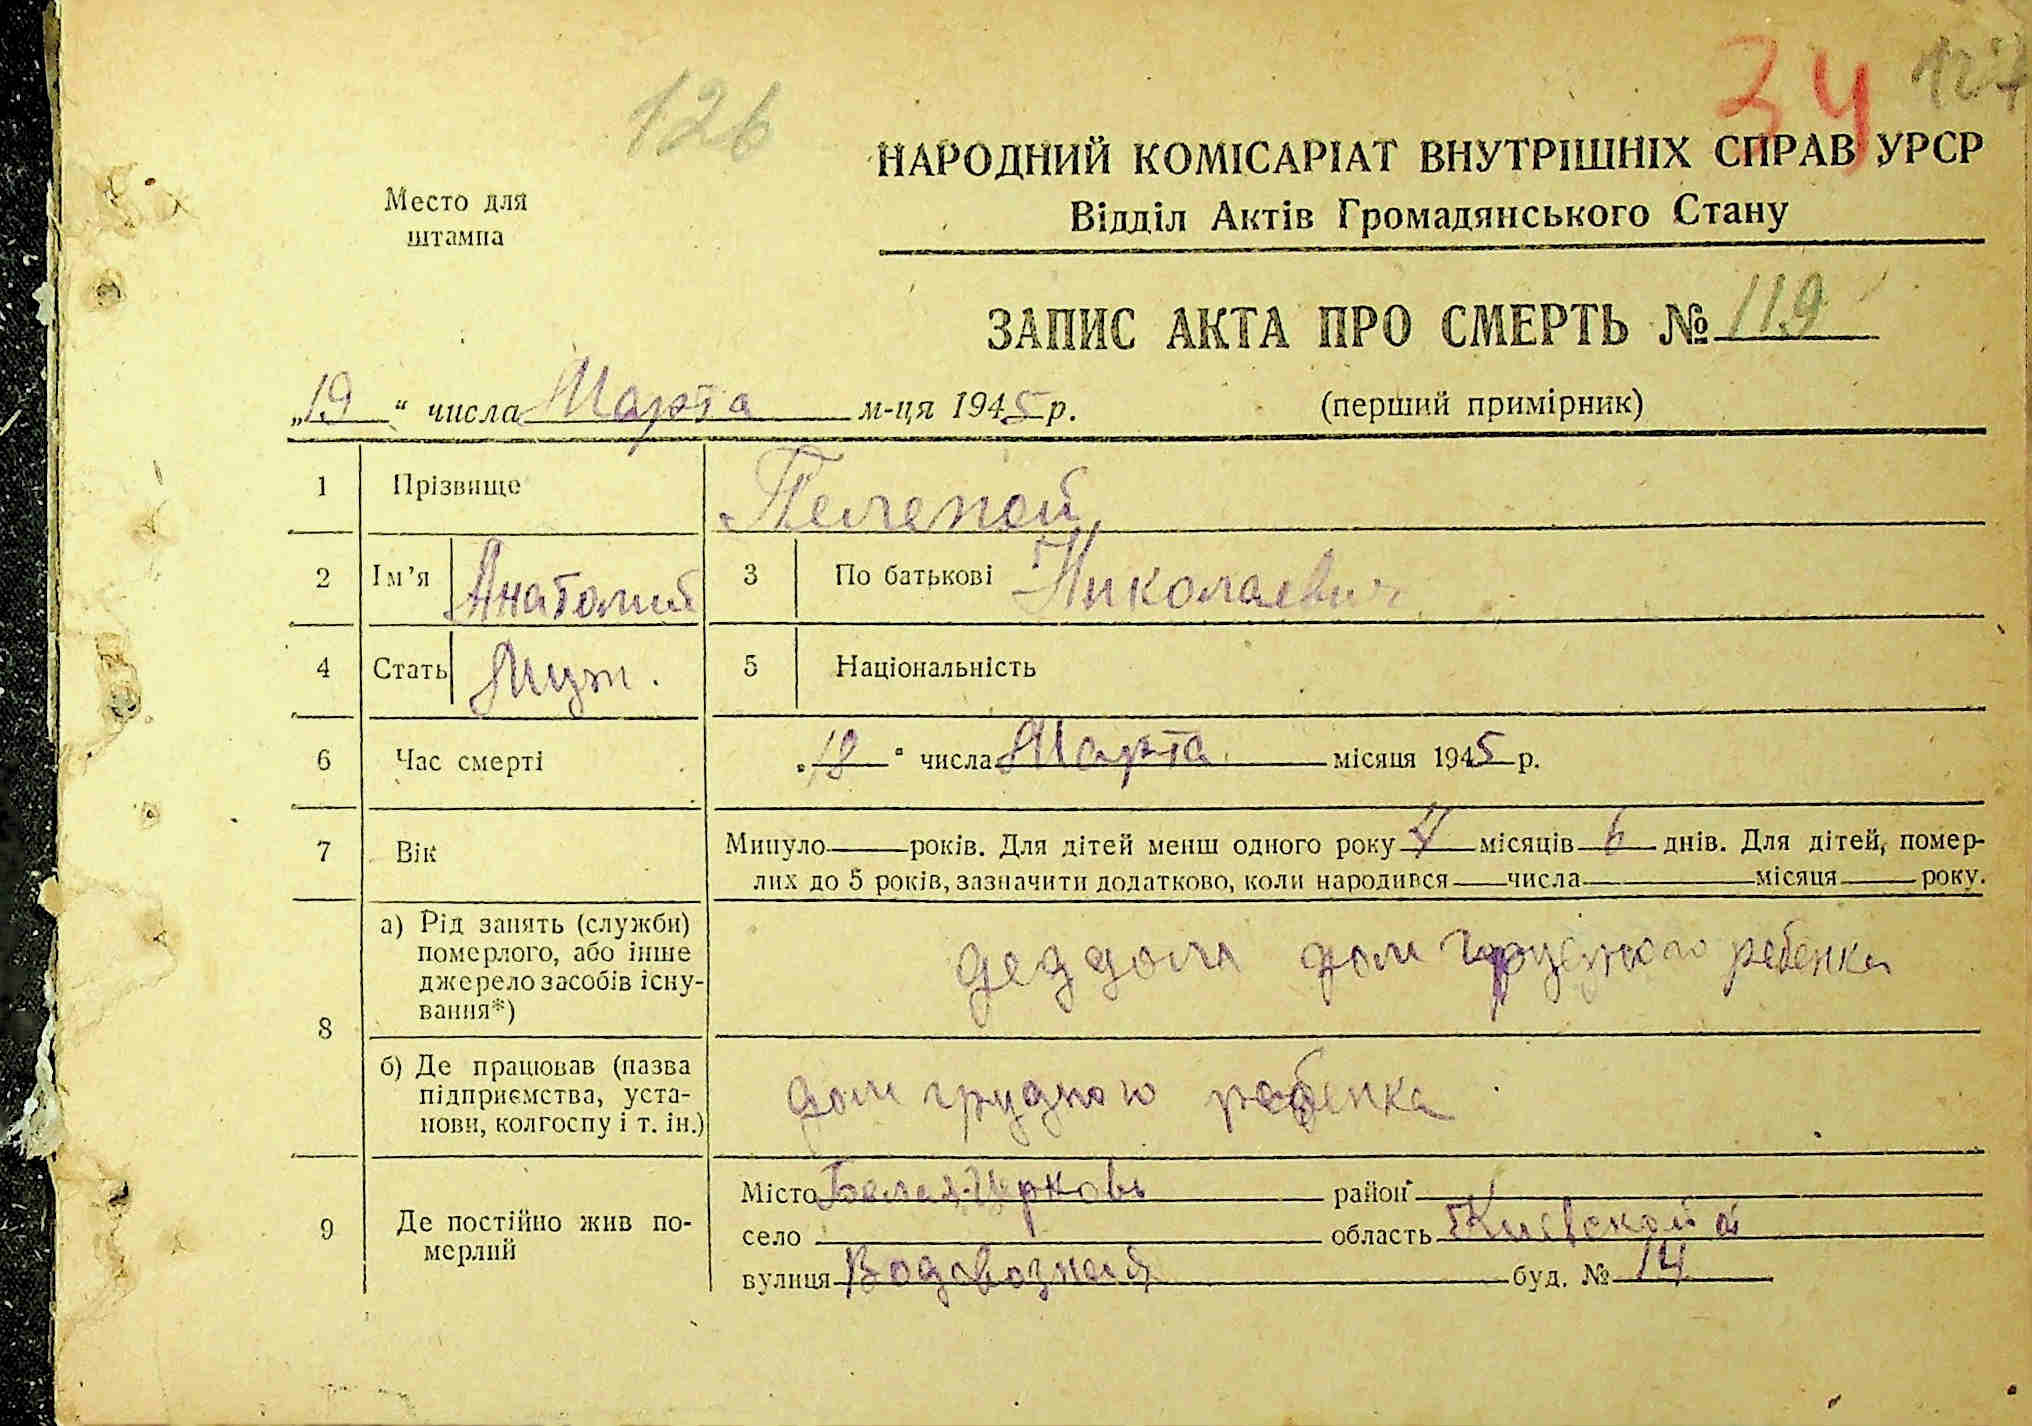 126
34 127
НАРОДНИЙ КОМІСАРІАТ ВНУТРІШНІХ СПРАВ УРСР
Відділ Актів Громадянського Стану
Место для
штампа
ЗАПИС АКТА ПРО СМЕРТЬ № 119
„19“ числа Марта м-ця 1945 р. (перший примірник)
1 Прізвище Пелепой
2 Ім’я Анатолий 3 По батькові Николаевич
4 Стать Муж. 5 Національність
6 Час смерті „18“ числа Марта місяця 1945 р.
7 Вік Минуло років. Для дітей менш одного року 4 місяців 6 днів. Для дітей, помер-
лих до 5 років, зазначити додатково, коли народився числа місяця року.
8 а) Рід занять (служби)
померлого, або інше
джерело засобів існу-
вання*)
дом ребенка
б) Де працював (назва
підприємства, уста-
нови, колгоспу і т. ін.)
дом грудного ребенка
9 Де постійно жив по-
мерлий
Місто Белая-Церковь район
село область Киевской
вулиця Водовозная буд. № 14